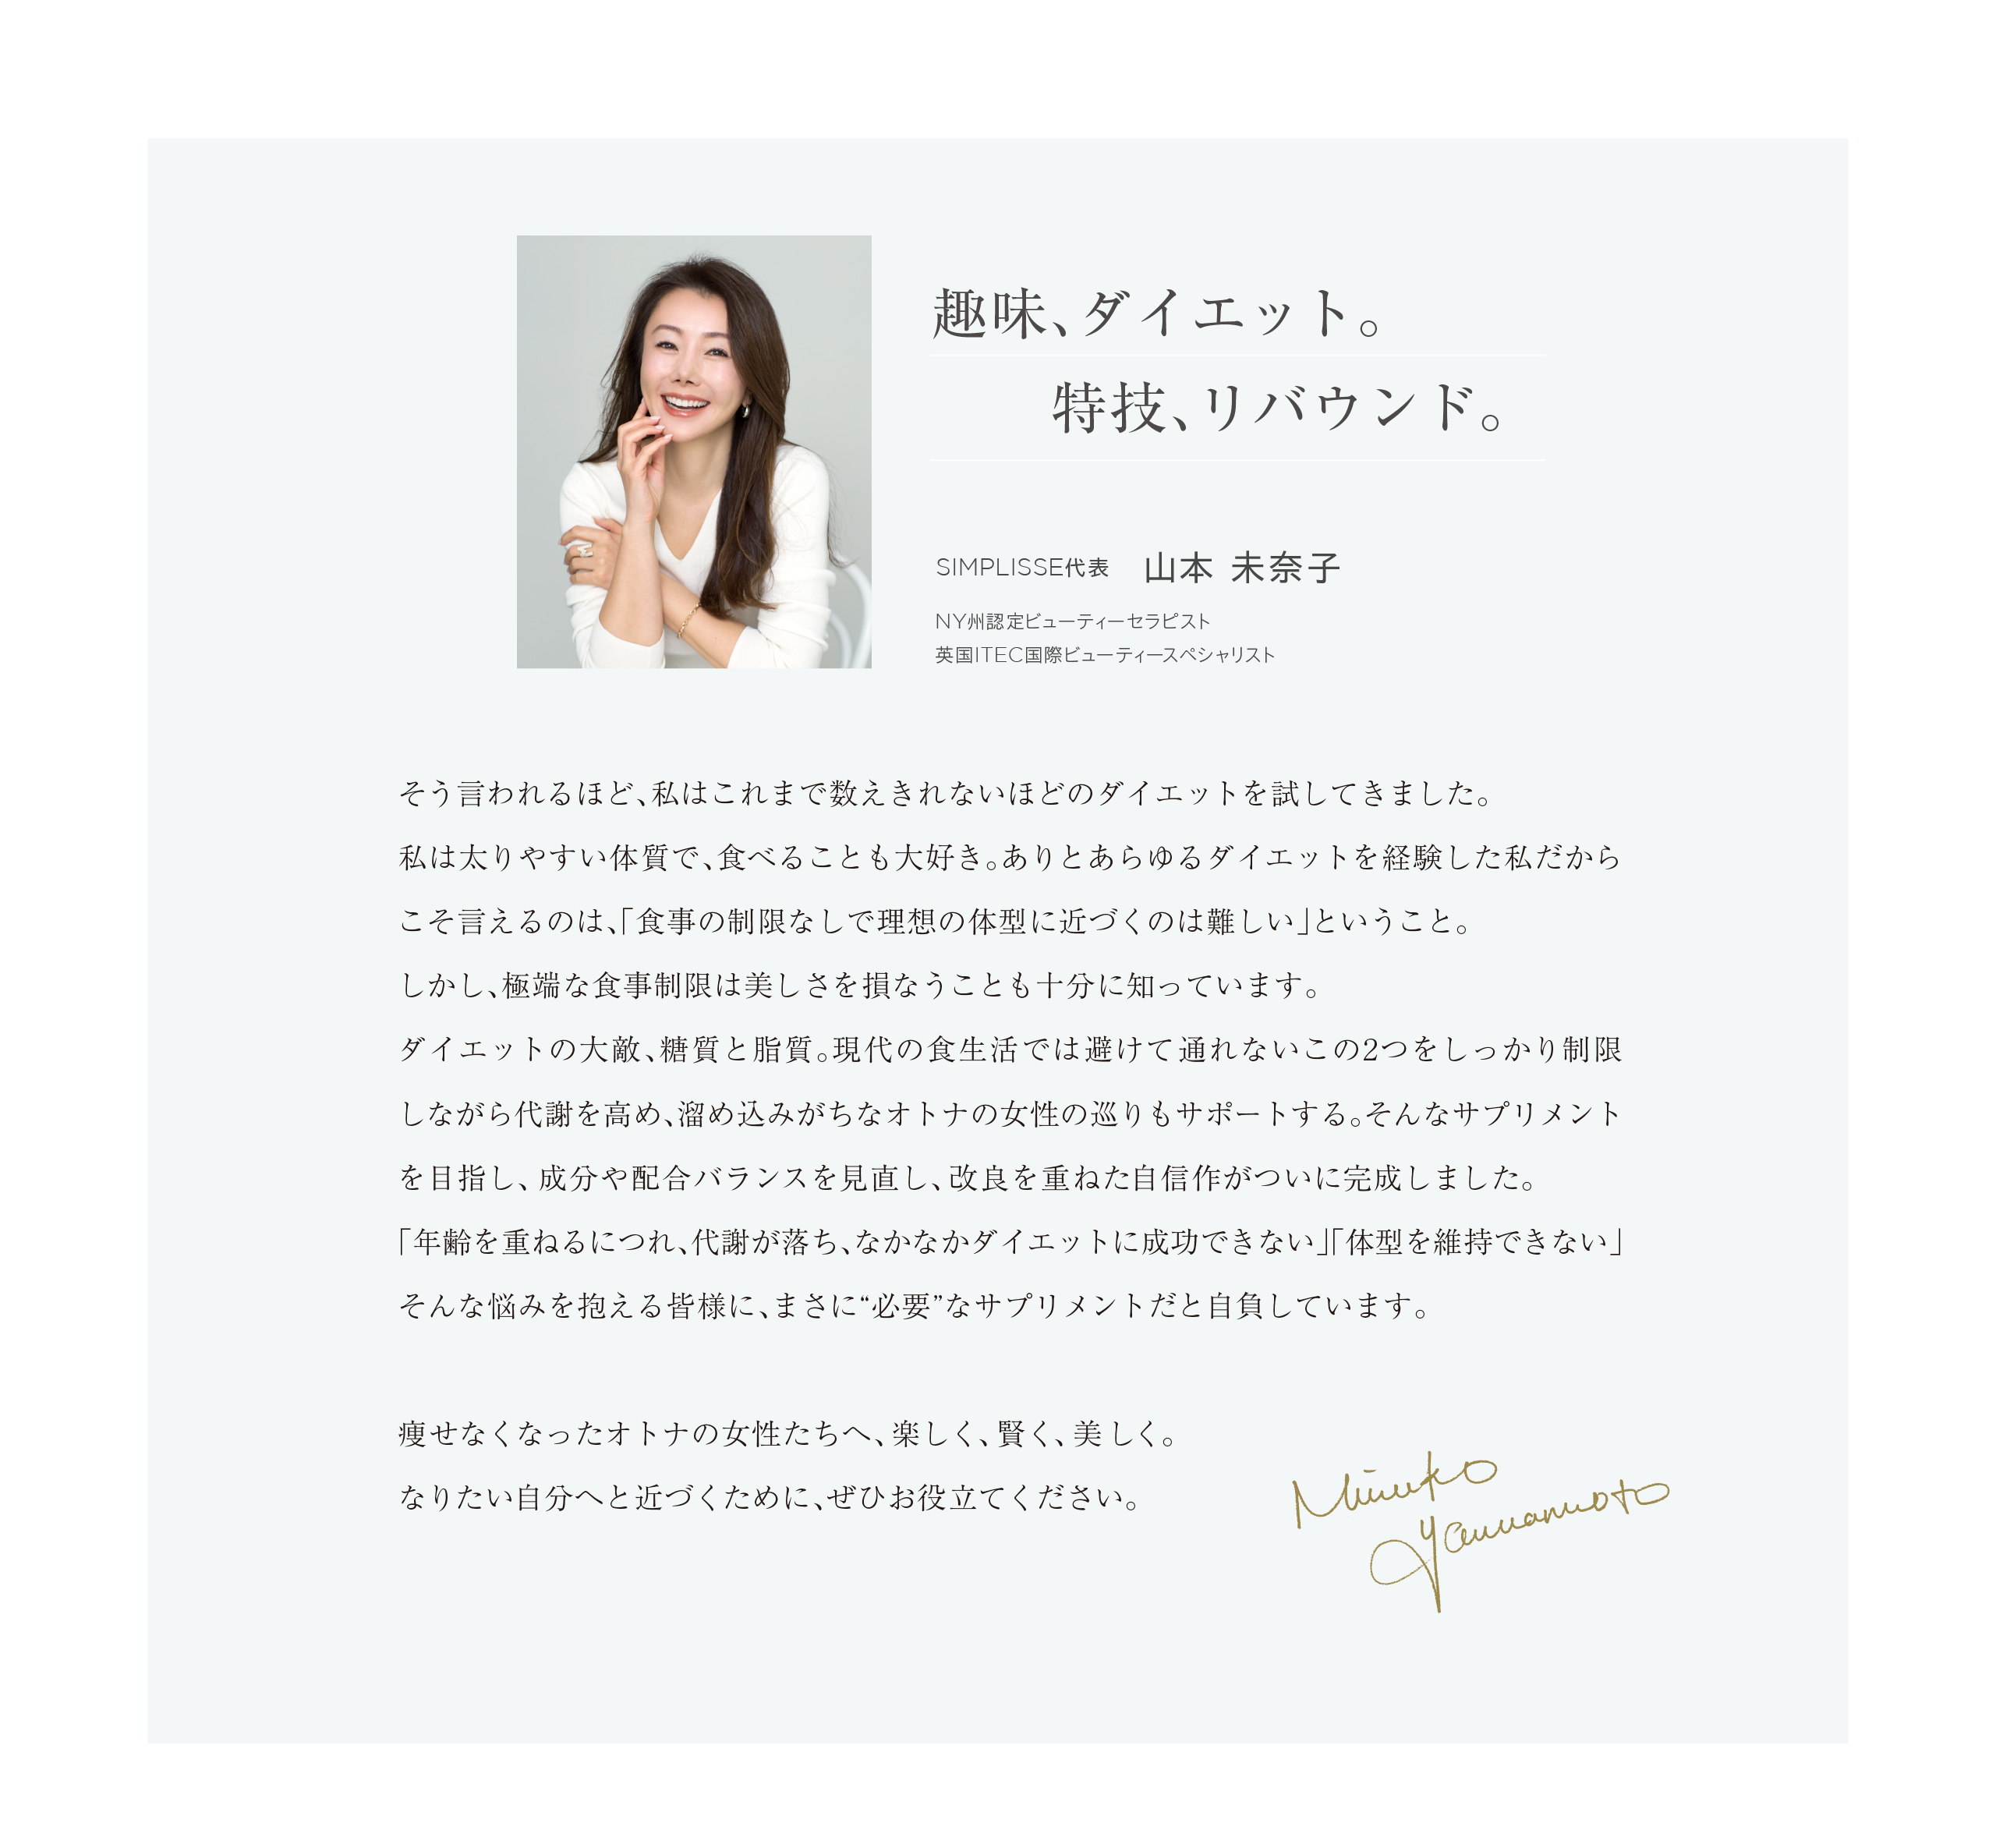 趣味、ダイエット。
特技、リバウンド。
SIMPLISSE代表 山本 未奈子
NY州認定ビューティーセラピスト
英国ITEC国際ビューティースペシャリスト
そう言われるほど、私はこれまで数えきれないほどのダイエットを試してきました。
私は太りやすい体質で、食べることも大好き。ありとあらゆるダイエットを経験した私だから
こそ言えるのは、「食事の制限なしで理想の体型に近づくのは難しい」ということ。
しかし、極端な食事制限は美しさを損なうことも十分に知っています。
ダイエットの大敵、糖質と脂質。現代の食生活では避けて通れないこの2つをしっかり制限
しながら代謝を高め、溜め込みがちなオトナの女性の巡りもサポートする。そんなサプリメント
を目指し、成分や配合バランスを見直し、改良を重ねた自信作がついに完成しました。
「年齢を重ねるにつれ、代謝が落ち、なかなかダイエットに成功できない」「体型を維持できない」
そんな悩みを抱える皆様に、まさに“必要”なサプリメントだと自負しています。
痩せなくなったオトナの女性たちへ、楽しく、賢く、美しく。
なりたい自分へと近づくために、ぜひお役立てください。
Minako
Yamamoto